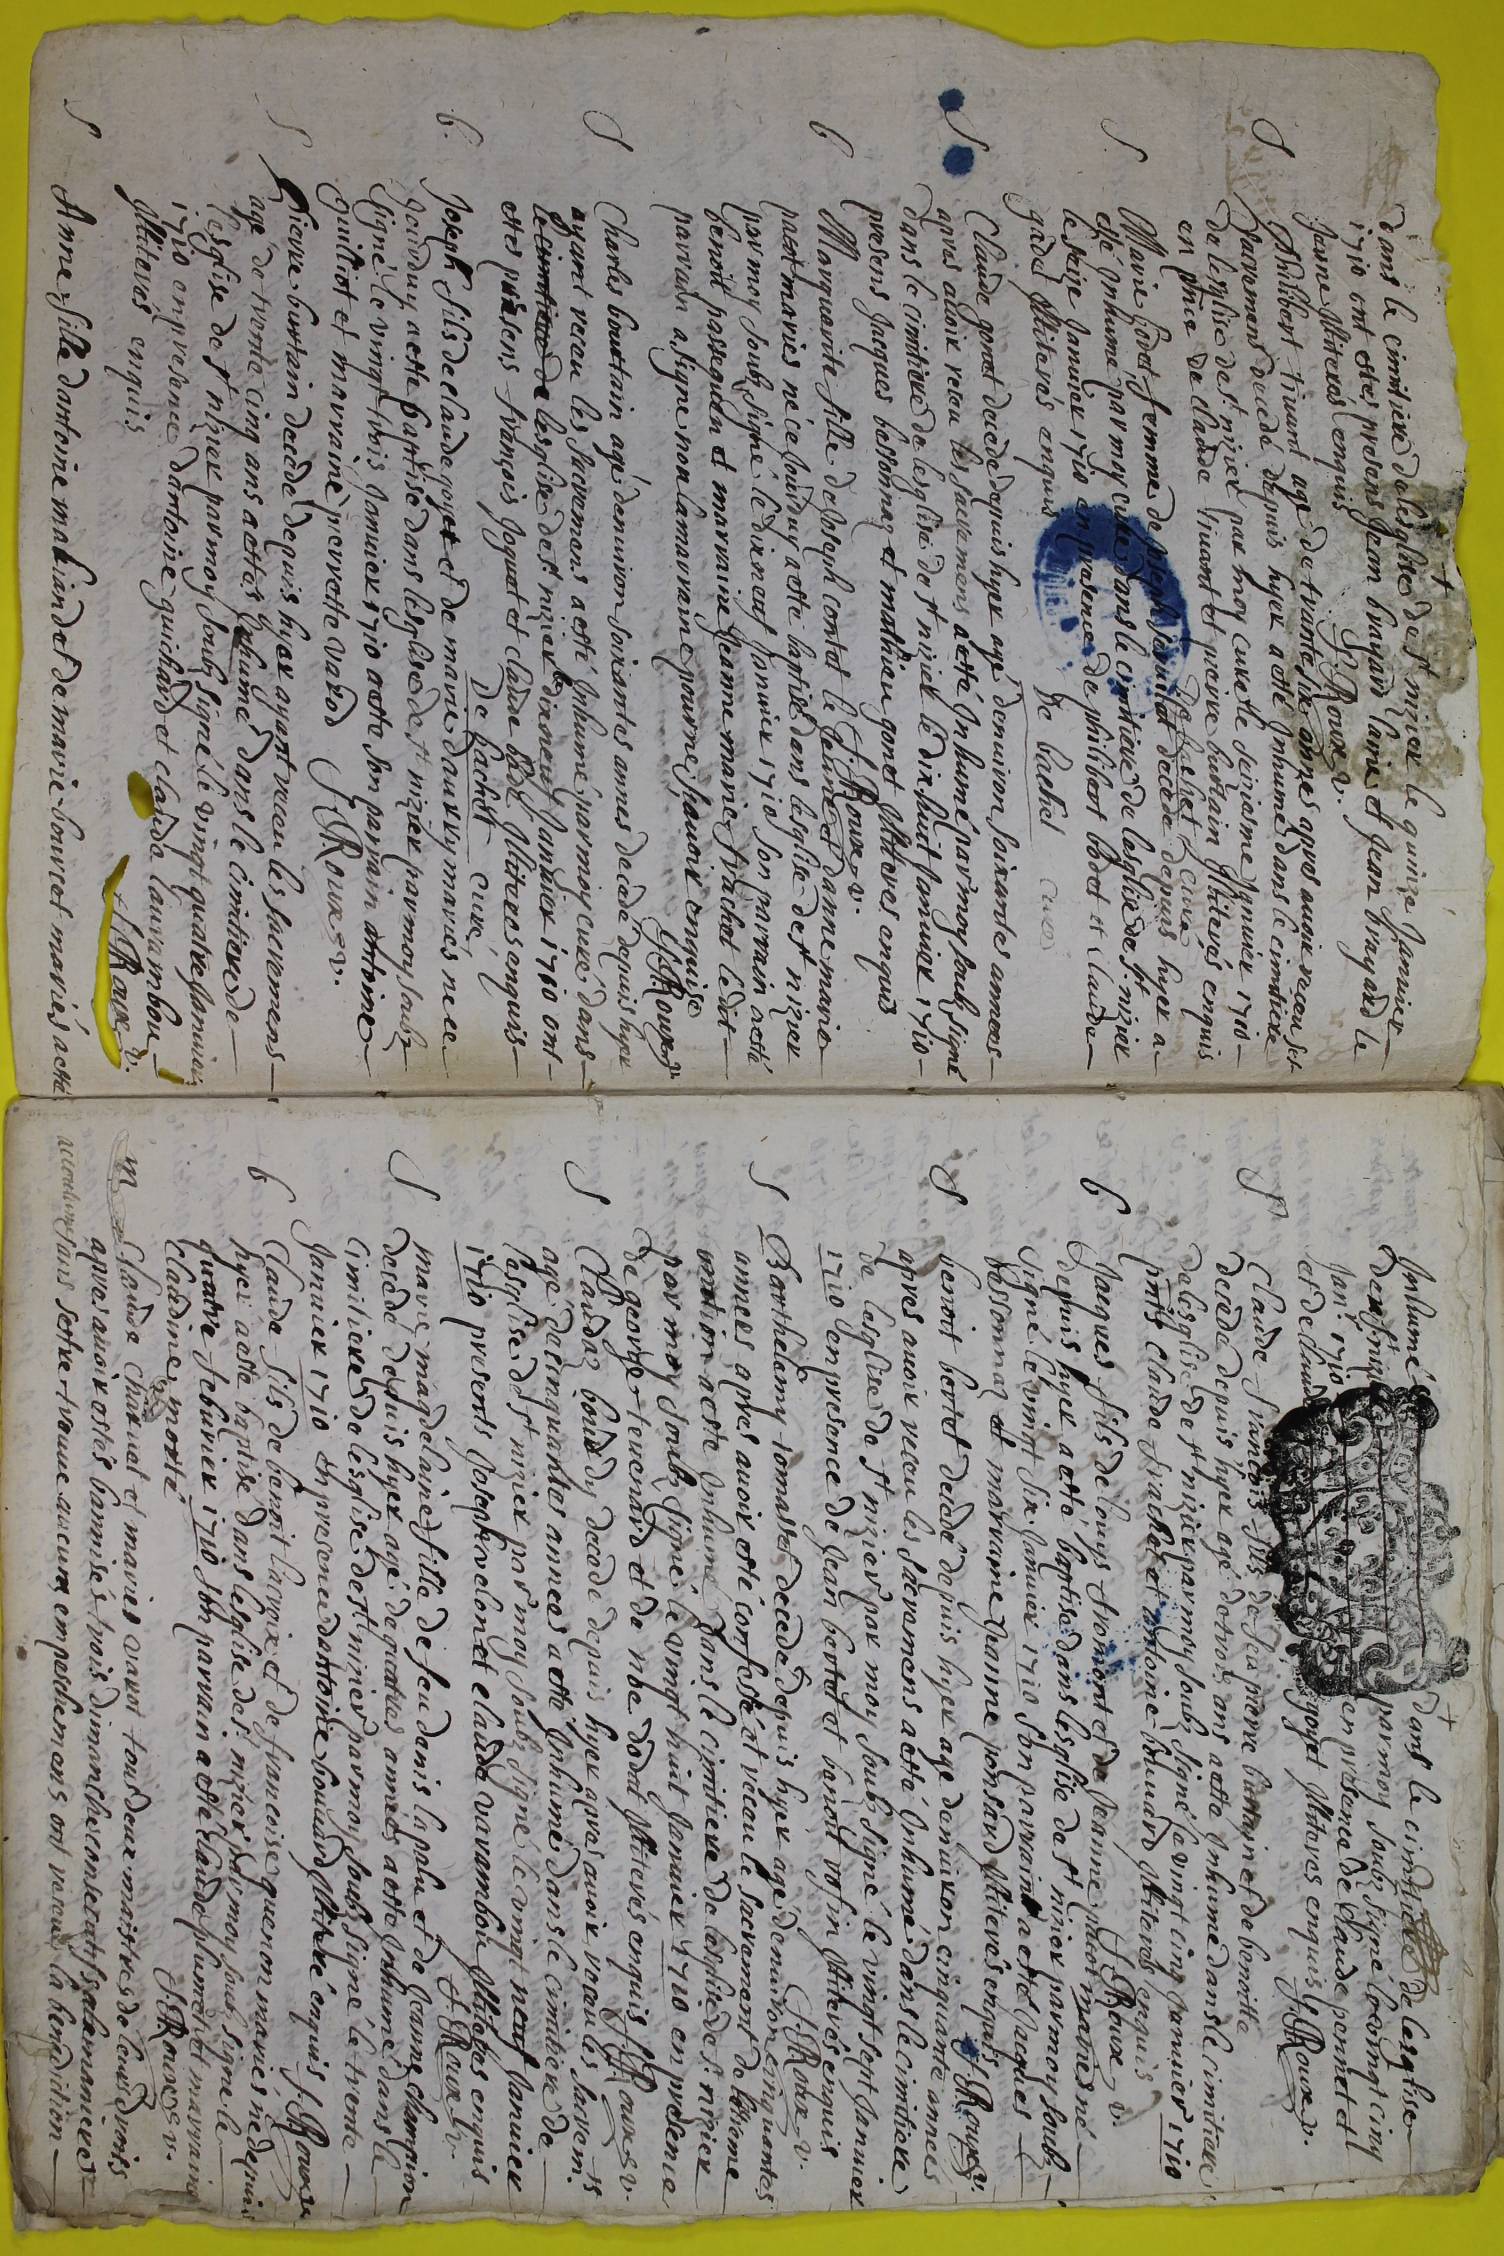 dans le cimitiere de lesglise de st nizier le quinze Janvier
1710 ont estes presens Jean brayard laine et Jean brayard le
Jeune Illiterés enquis J. Roux v.
S
Philibert tinard age de trante six annes apres avoir receu set
sacremens decedé depuis hyer a esté Inhumé dans le cimitiere
de lesglise de st nizier par moy curé le seiziesme Janvier 1710
en pnce de claude tinard et pierre burtain Illiterés enquis
De bachet curé
S.
Marie godet femme de Joseph decedé depuis hyer a
esté Inhumé par moy curé dans le cimitiere de lesglise de st. nizier
le seize Janvier 1710 en presence de philibert godet et claude
godet Illiterés enquis De bachet curé
S
Claude gonet decedé depuis hyer agé denviron soixante annees
apres avoir receu les sacremens a esté Inhumé par moy soub signé
dans le cimitiere de lesglise de st nizier le dix huit Janvier 1710
presens Jacques bessonnaz et mathieu gonet Illiteres enquis
J. Roux v.
b
Marguerite fille de Joseph contat le Jeune et danne marie
pacot mariés né ce Jourduy a este baptisé dans lesglise de st nizier
par moy soub signé le dix neuf Janvier 1710 son parrain a esté
benoit passegueu et marraine Jeanne marie frachet le dit
parrain a signe non la marraine pour ne scavoir enquise
J. Roux v.
S
Charles bourtain agé denviron soixantes annes decedé depuis hyer
ayant receu les sacremens a esté Inhumé par moy curé dans
le cimitiere de lesglise de st nizier le dixneuf Janvier 1710 ont
estes presens francois Joguet et claude godet Illiteres enquis
De bachet curé
b.
Joseph fils de claude goyet et de marie dauxvy mariés ne ce
Jourduy a este baptisé dans lesglise de st nizier par moy soubz
signé le vingt trois Janvier 1710 a este son parrain antoine
guilliot et marraine pierrette varod J. Roux v.
S
Pierre burtain decedé depuis hyer ayant receu les sacremens
agé de trente cinq ans a estes Inhumé dans le cimitiere de
lesglise de st nizier par moy soubz signé le vingt quatre Janvier
1710 en presence dantoine guichard et claude lavarambou
Illiterés enquis J. Roux v.
S
Anne fille dantoine malland et de marie bouvet mariés a esté
Inhumé dans le cimitiere de lesglise
de st nizier par moy soubz signé le vingt cinq
Janr. 1710 en presence de claude ponnet et
et de claude goyet Illiteres enquis J. Roux v.
S
Claude francois fils de feu pierre burtain et de benoitte
decedé depuis hyer agé de trois ans a este Inhumé dans le cimitiere
de lesglise de st nizier par moy soubz signé le vingt cinq Janvier 1710
pnts claude frachet et antoine bouvard Illiterés enquis
J. Roux v.
b
Jacques fils de louys fromont et de Jeanne pacot mariés né
depuis hyer a esté baptise dans lesglise de st nizier par moy soubz
signé le vingt six Janvier 1710 son parrain a esté Jacques
bessonnaz et marraine Jeanne ponsard Illiterés enquis J. Roux v.
S
benoit bertet decedé depuis hyer age denviron cinquante annees
apres avoir receu les sacremens a esté Inhumé dans le cimitiere
de lesglise de st nizier par moy soub signé le vingt sept Janvier
1710 en presence de Jean bertet et benoit Illiterés enquis
J. Roux v.
S
Barthelemy romastet decedé depuis hyer agé denviron cinquantes
annees apres avoir esté confessé et receu le sacrement de lextreme
onction a este Inhumé dans le cimitiere de lesglise de st nizier
par moy soubz signé le vingt huit Janvier 1710 en presence
de george tevenard et de nbe dodat Illiterés enquis J. Roux v.
S
Claudaz bourdy decede depuis hyer apres avoir receu les sacrem.ts
age de cinquantes annees a esté Inhumé dans le cimitiere de
lesglise de st nizier par moy soubz signé le vingt neuf Janvier
1710 presents Joseph velon et claude varambou Illiteres enquis
J. Roux v.
S
marie magdelaine fille de feu denis lapalu et de Jeanne champion
decedé depuis hyer agé de quatres annees a este Inhumé dans le
cimitiere de lesglise de st nizier par moy soubz signé le trente
Janvier 1710 en presence dantoine bouvard Illiteré enquis J. Roux v.
b
Claude fils de benoit lacroix et de francoise quenon mariés né depuis
hyer a este baptise dans lesglise de st nizier par moy soub signe le
quatre febvrier 1710 son parrain a este claude plumet et marraine
claudine morté J. Roux v.
m
Claude charvet et maries varot tous deux maistres de leurs droits
apres avoir estés bannisés trois dimanche consecutifs
sans sestre trouve aucuns empechemens ont receu la benediction